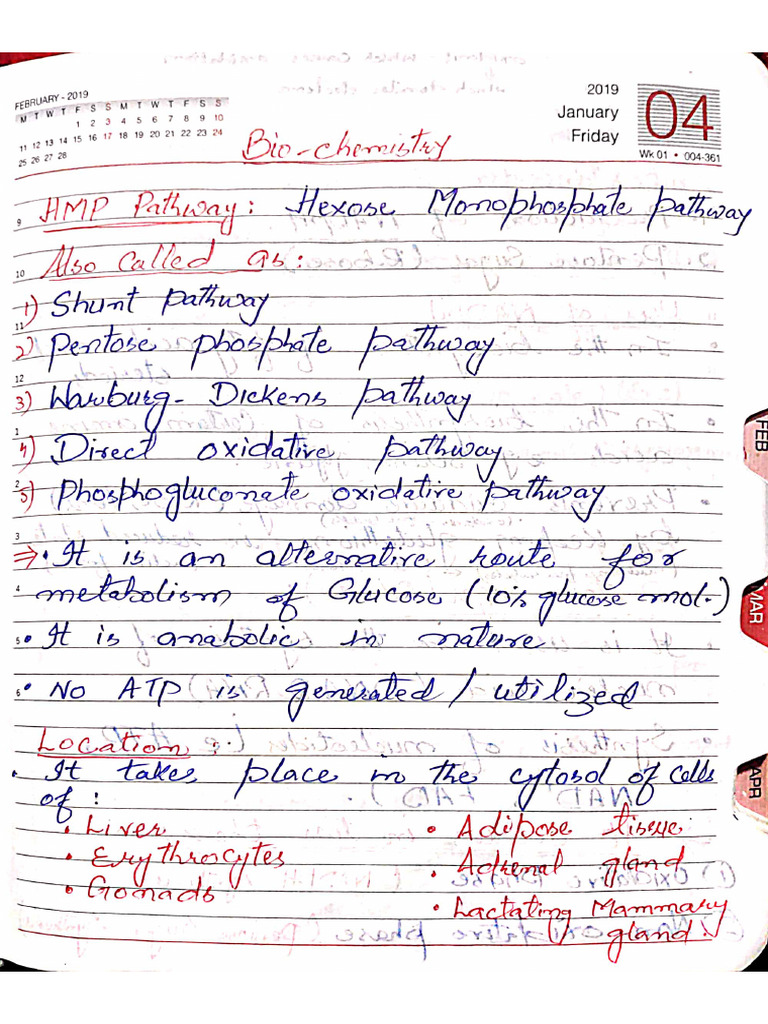 FEBRUARY - 2019
M T W T F S S M T W T F S S
1 2 3 4 5 6 7 8 9 10
11 12 13 14 15 16 17 18 19 20 21 22 23 24
25 26 27 28
2019
January
Friday
04
Wk 01 • 004-361
Bio-chemistry
HMP Pathway: Hexose Monophosphate pathway
Also Called as:
1) Shunt pathway
2) Pentose phosphate pathway
3) Warburg-Dickens pathway
4) Direct oxidative pathway
5) Phosphogluconate oxidative pathway
⇒• It is an alternative route for
metabolism of Glucose (10% glucose mol.)
• It is anabolic in nature
• No ATP is generated / utilized
Location:
• It takes place in the cytosol of cells
of:
• Liver
• Erythrocytes
• Gonads
• Adipose tissue
• Adrenal gland
• Lactating Mammary
gland.
9
10
11
12
1
2
3
4
5
6
FEB
MAR
APR